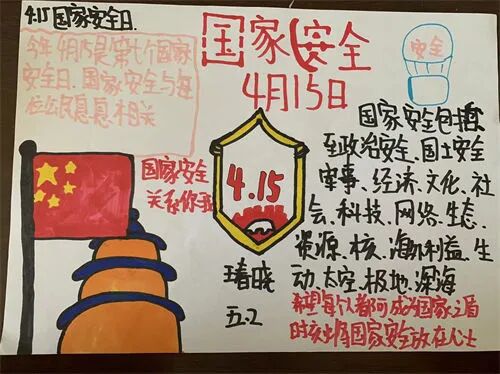 4.15国家安全日.
今年4月15是第七个国家
安全日.国家安全与每
位公民息息相关
国家安全
4月15日
安全
国家安全
关系你我
4.15
国家安全包括
政治安全、国土安全
军事、经济、文化、社
会、科技、网络、生态、
资源、核、海外利益、生
动、太空、极地、深海
希望每个人都可成为国家之盾
时刻将国家安全放在心上
五.2